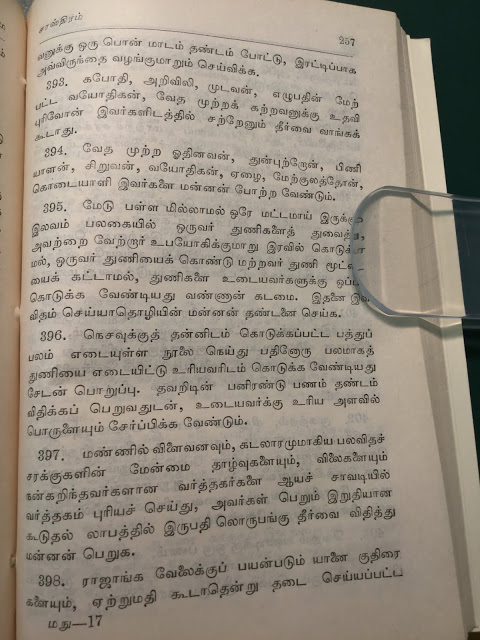 சாஸ்திரம் 257
வனுக்கு ஒரு பொன் மாடம் தண்டம் போட்டு, இரட்டிப்பாக
அவ்விருந்தை வழங்குமாறும் செய்விக்க.
393. கபோதி, அறிவிலி, முடவன், எழுபதின் மேற்
பட்ட வயோதிகன், வேத முற்றக் கற்றவனுக்கு உதவி
புரிவோன் இவர்களிடத்தில் சற்றேனும் தீர்வை வாங்கக்
கூடாது.
394. வேத முற்ற ஓதினவன், துன்புற்றோன், பிணி
யாளன், சிறுவன், வயோதிகன், ஏழை, மேற்குலத்தோன்,
கொடையாளி இவர்களை மன்னன் போற்ற வேண்டும்.
395. மேடு பள்ள மில்லாமல் ஒரே மட்டமாய் இருக்கும்
இலவம் பலகையில் ஒருவர் துணிகளைத் துவைத்து,
அவற்றை வேற்றார் உபயோகிக்குமாறு இரவில் கொடுக்கா
மல், ஒருவர் துணியைக் கொண்டு மற்றவர் துணி மூட்டை
யைக் கட்டாமல், துணிகளை உடையவர்களுக்கு
கொடுக்க வேண்டியது வண்ணான் கடமை. இதனை இவ்
விதம் செய்யாதொழியின் மன்னன் தண்டனை செய்க.
396. நெசவுக்குத் தன்னிடம் கொடுக்கப்பட்ட பத்துப்
பலம் எடையுள்ள நூலை நெய்து பதினோரு பலமாகத்
துணியை எடையிட்டு உரியவரிடம் கொடுக்க வேண்டியது
சேடன் பொறுப்பு. தவறிடின் பனிரண்டு பணம் தண்டம்
விதிக்கப் பெறுவதுடன், உடையவர்க்கு உரிய அளவில்
பொருளையும் சேர்ப்பிக்க வேண்டும்.
397. மண்ணில் விளைவனவும், கடலாரமுமாகிய பலவிதச்
சரக்குகளின் மேன்மை தாழ்வுகளையும், விலைகளையும்
நன்கறிந்தவர்களான வர்த்தகர்களை ஆயச் சாவடியில்
வர்த்தகம் புரியச் செய்து, அவர்கள் பெறும் இறுதியான
கூடுதல் லாபத்தில் இருபதி லொருபங்கு தீர்வை விதித்து
மன்னன் பெறுக.
398. ராஜாங்க வேலைக்குப் பயன்படும் யானை குதிரை
களையும், ஏற்றுமதி கூடாதென்று தடை செய்யப்பட்ட
மநு—17